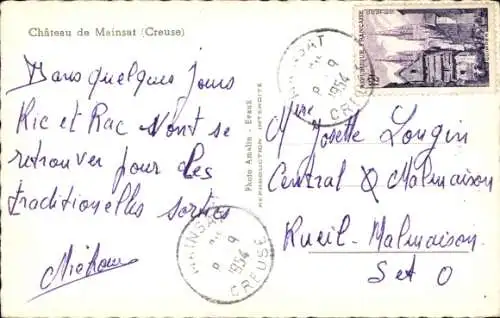 Château de Mainsat (Creuse)
Dans quelques jours
Ric et Rac vont se
retrouver pour des
traditionelles sorties
Photo Amelin - Evaux
REPRODUCTION INTERDITE
MAINSAT
9
1954
CREUSE
RÉPUBLIQUE FRANÇAISE
Mme Josette Longin
Central Q Malmaison
Rueil-Malmaison
S et O
MAINSAT
9
1954
CREUSE